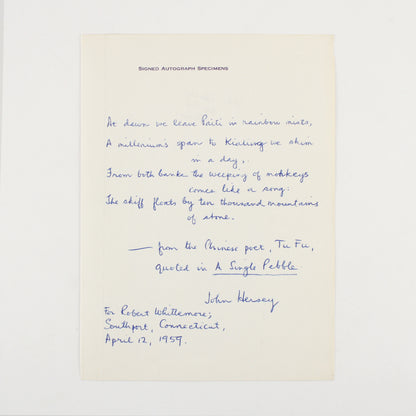 SIGNED AUTOGRAPH SPECIMENS
At dawn we leave Paiti in rainbow mists,
A millenium's span to Kialing we skim
in a day,.
From both banks the weeping of monkeys
comes like a song:
The skiff floats by ten thousand mountains
of stone.
— from the Chinese poet, Tu Fu,
quoted in A Single Pebble
John Hersey
For Robert Whittemore;
Southport, Connecticut,
April 12, 1959.